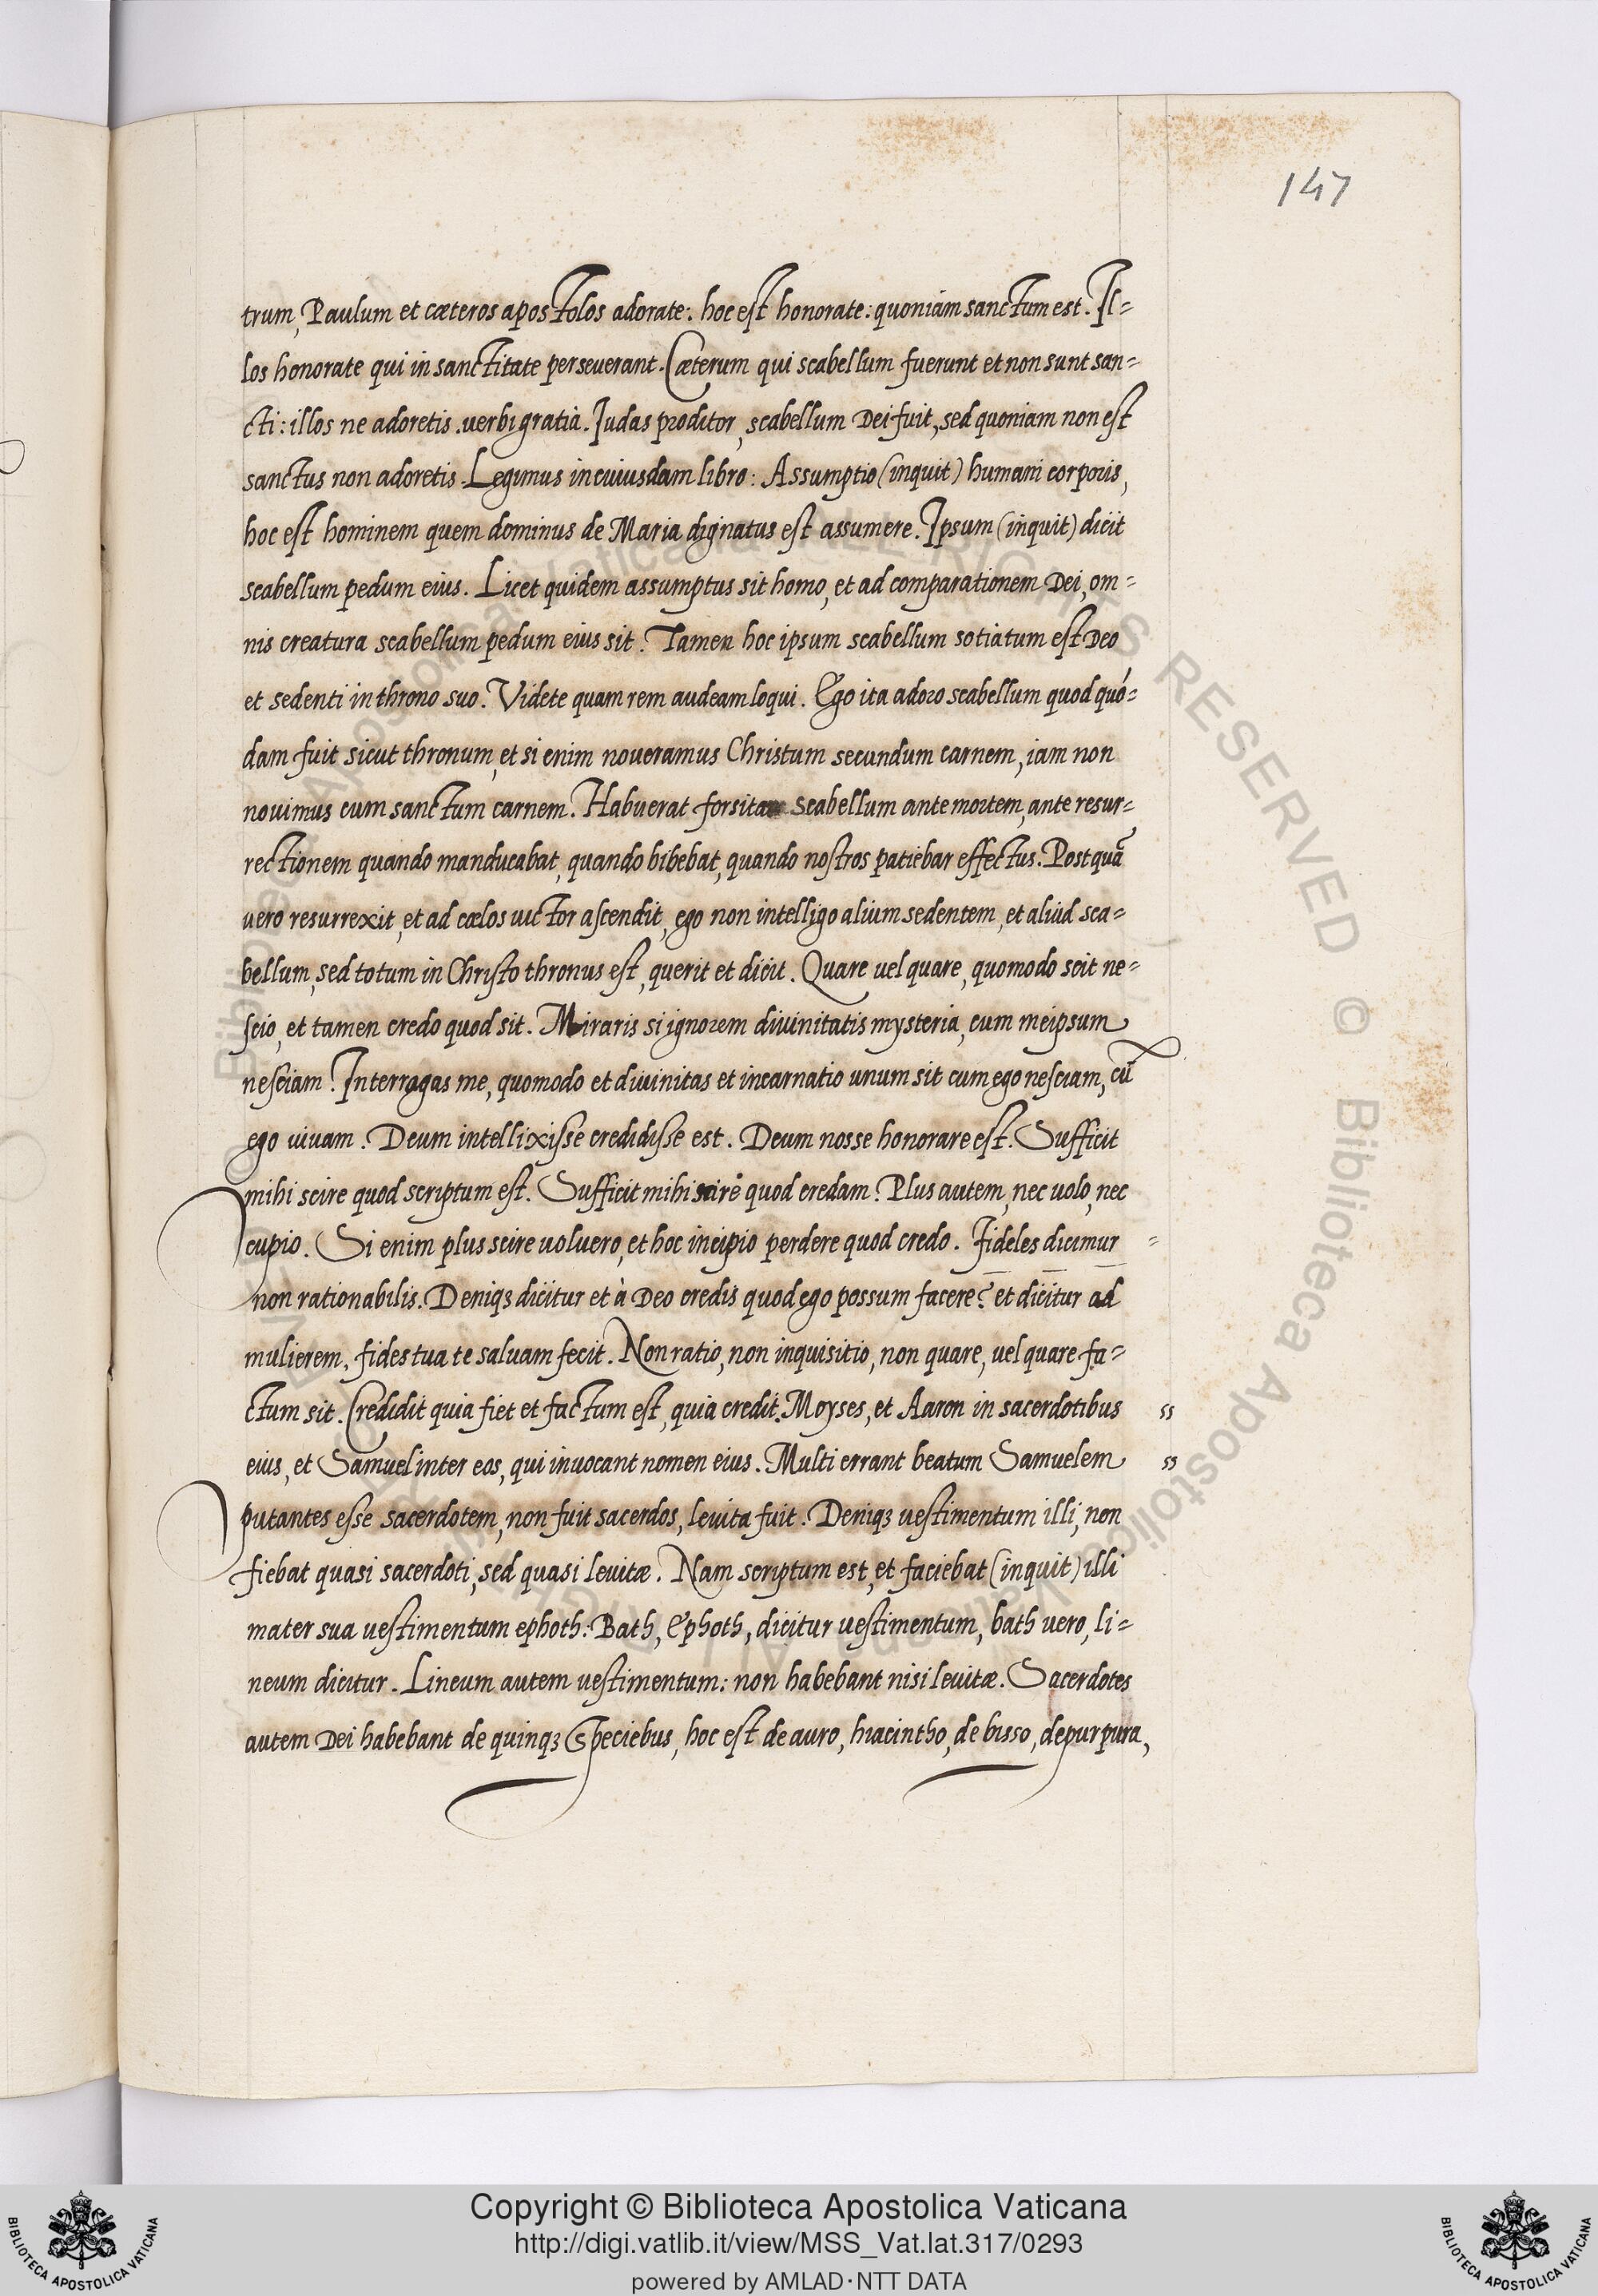 147
trum, Paulum et cæteros apostolos adorate: hoc est honorate: quoniam sanctum est. Il=
los honorate qui in sanctitate perseuerant. Cæterum qui scabellum fuerunt et non sunt san=
cti: illos ne adoretis. uerbi gratia. Iudas proditor, scabellum Dei fuit, sed quoniam non est
sanctus non adoretis. Legimus in cuiusdam libro: Assumptio (inquit) humani corporis,
hoc est hominem quem dominus de Maria dignatus est assumere. Ipsum (inquit) dicit
scabellum pedum eius. Licet quidem assumptus sit homo, et ad comparationem Dei, om=
nis creatura scabellum pedum eius sit. Tamen hoc ipsum scabellum sotiatum est Deo
et sedenti in throno suo. Videte quam rem audeam loqui. Ego ita adoro scabellum quod quó=
dam fuit sicut thronum, et si enim noueramus Christum secundum carnem, iam non
nouimus eum sanctum carnem. Habuerat forsitam scabellum ante mortem, ante resur=
rectionem quando manducabat, quando bibebat, quando nostros patiebar effectus. Postquã
uero resurrexit, et ad cœlos uictor ascendit, ego non intelligo alium sedentem, et aliud sca=
bellum, sed totum in Christo thronus est, querit et dicit. Quare uel quare, quomodo scit ne=
scio, et tamen credo quod sit. Miraris si ignorem diuinitatis mysteria, cum meipsum
nesciam? Interrogas me, quomodo et diuinitas et incarnatio unum sit cum ego nesciam, cũ
ego uiuam. Deum intellixisse credidisse est. Deum nosse honorare est. Sufficit
mihi scire quod scriptum est. Sufficit mihi scire quod credam? Plus autem, nec uolo, nec
cupio. Si enim plus scire uoluero, et hoc incipio perdere quod credo. Fideles dicimur =
non rationabilis. Deniqꝫ dicitur et à Deo credis quod ego possum facere? et dicitur ad
mulierem, fides tua te saluam fecit. Non ratio, non inquisitio, non quare, uel quare fa=
ctum sit. Credidit quia fiet et factum est, quia credit. Moyses, et Aaron in sacerdotibus ss
eius, et Samuel inter eos, qui inuocant nomen eius. Multi errant beatum Samuelem ss
putantes esse sacerdotem, non fuit sacerdos, leuita fuit. Deniqꝫ uestimentum illi, non
fiebat quasi sacerdoti, sed quasi leuitæ. Nam scriptum est, et faciebat (inquit) illi
mater sua uestimentum ephoth: Bath, Ephoth, dicitur uestimentum, bath uero, li=
neum dicitur. Lineum autem uestimentum: non habebant nisi leuitæ. Sacerdotes
autem Dei habebant de quinqꝫ Speciebus, hoc est de auro, hiacintho, de bisso, de purpura,
Copyright © Biblioteca Apostolica Vaticana
http://digi.vatlib.it/view/MSS_Vat.lat.317/0293
powered by AMLAD·NTT DATA
BIBLIOTECA APOSTOLICA VATICANA
BIBLIOTECA APOSTOLICA VATICANA